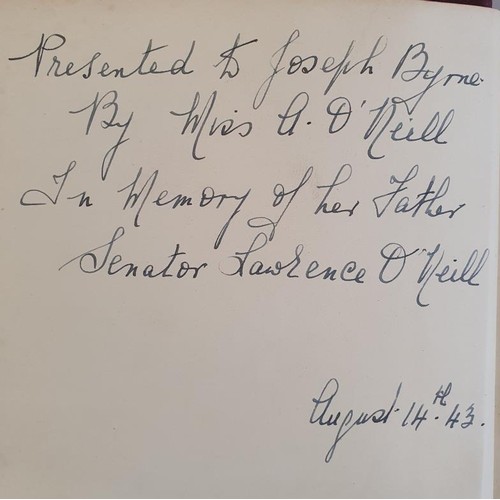 Presented to Joseph Byrne.
By Miss A. O'Neill
In Memory of her Father
Senator Lawrence O'Neill
August 14th. 43.